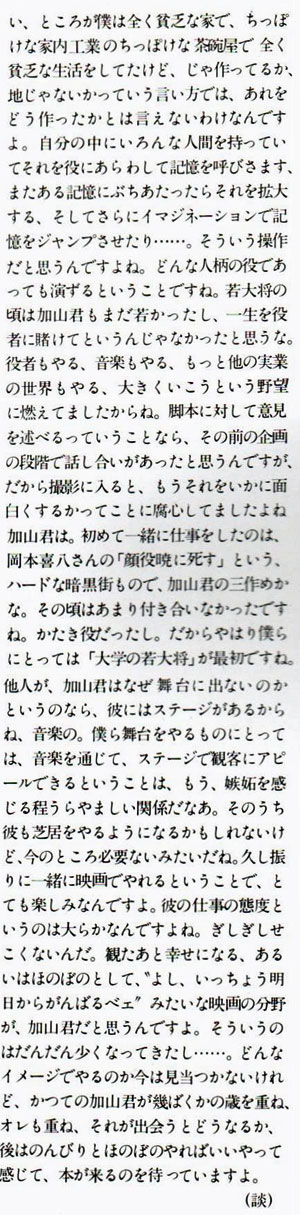 い、ところが僕は全く貧乏な家で、ちっぽ
けな家内工業のちっぽけな茶碗屋で 全く
貧乏な生活をしてたけど、じゃ作ってるか、
地じゃないかっていう言い方では、あれを
どう作ったかとは言えないわけなんです
よ。自分の中にいろんな人間を持ってい
てそれを役にあらわして記憶を呼びさます、
またある記憶にぶちあたったらそれを拡大
する、そしてさらにイマジネーションで記
憶をジャンプさせたり……。そういう操作
だと思うんですよね。どんな人柄の役であ
っても演ずるということですね。若大将の
頃は加山君もまだ若かったし、一生を役
者に賭けてというんじゃなかったと思うな。
役者もやる、音楽もやる、もっと他の実業
の世界もやる、大きくいこうという野望
に燃えてましたからね。脚本に対して意見
を述べるっていうことなら、その前の企画
の段階で話し合いがあったと思うんですが、
だから撮影に入ると、もうそれをいかに面
白くするかってことに腐心してましたよね
加山君は。初めて一緒に仕事をしたのは、
岡本喜八さんの「顔役暁に死す」という、
ハードな暗黒街もので、加山君の三作めか
な。その頃はあまり付き合いなかったです
ね。かたき役だったし。だからやはり僕ら
にとっては「大学の若大将」が最初ですね。
他人が、加山君はなぜ舞台に出ないのか
というのなら、彼にはステージがあるから
ね、音楽の。僕ら舞台をやるものにとって
は、音楽を通じて、ステージで観客にアピ
ールできるということは、もう、嫉妬を感
じる程うらやましい関係だなあ。そのうち
彼も芝居をやるようになるかもしれないけ
ど、今のところ必要ないみたいだね。久し振
りに一緒に映画でやれるということで、と
ても楽しみなんですよ。彼の仕事の態度と
いうのは大らかなんですよね。ぎしぎしせ
こくないんだ。観たあと幸せになる、ある
いはほのぼのとして、〝よし、いっちょう明
日からがんばるベェ〟みたいな映画の分野
が、加山君だと思うんですよ。そういうの
はだんだん少くなってきたし……。どんな
イメージでやるのか今は見当つかないけれ
ど、かつての加山君が幾ばくかの歳を重ね、
オレも重ね、それが出会うとどうなるか、
後はのんびりとほのぼのやればいいやって
感じて、本が来るのを待っていますよ。
(談)